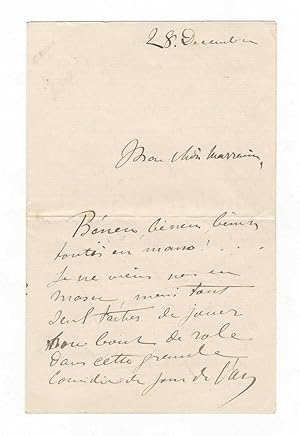 28. Decembre
Mon chère Marraine,
Bénen bénen bénen
toutes en masse! ...
Je ne viens pas en
masse, mais tout
seul tacher de jouer
mon bout de role
dans cette grande
Comédie du jour de l'an